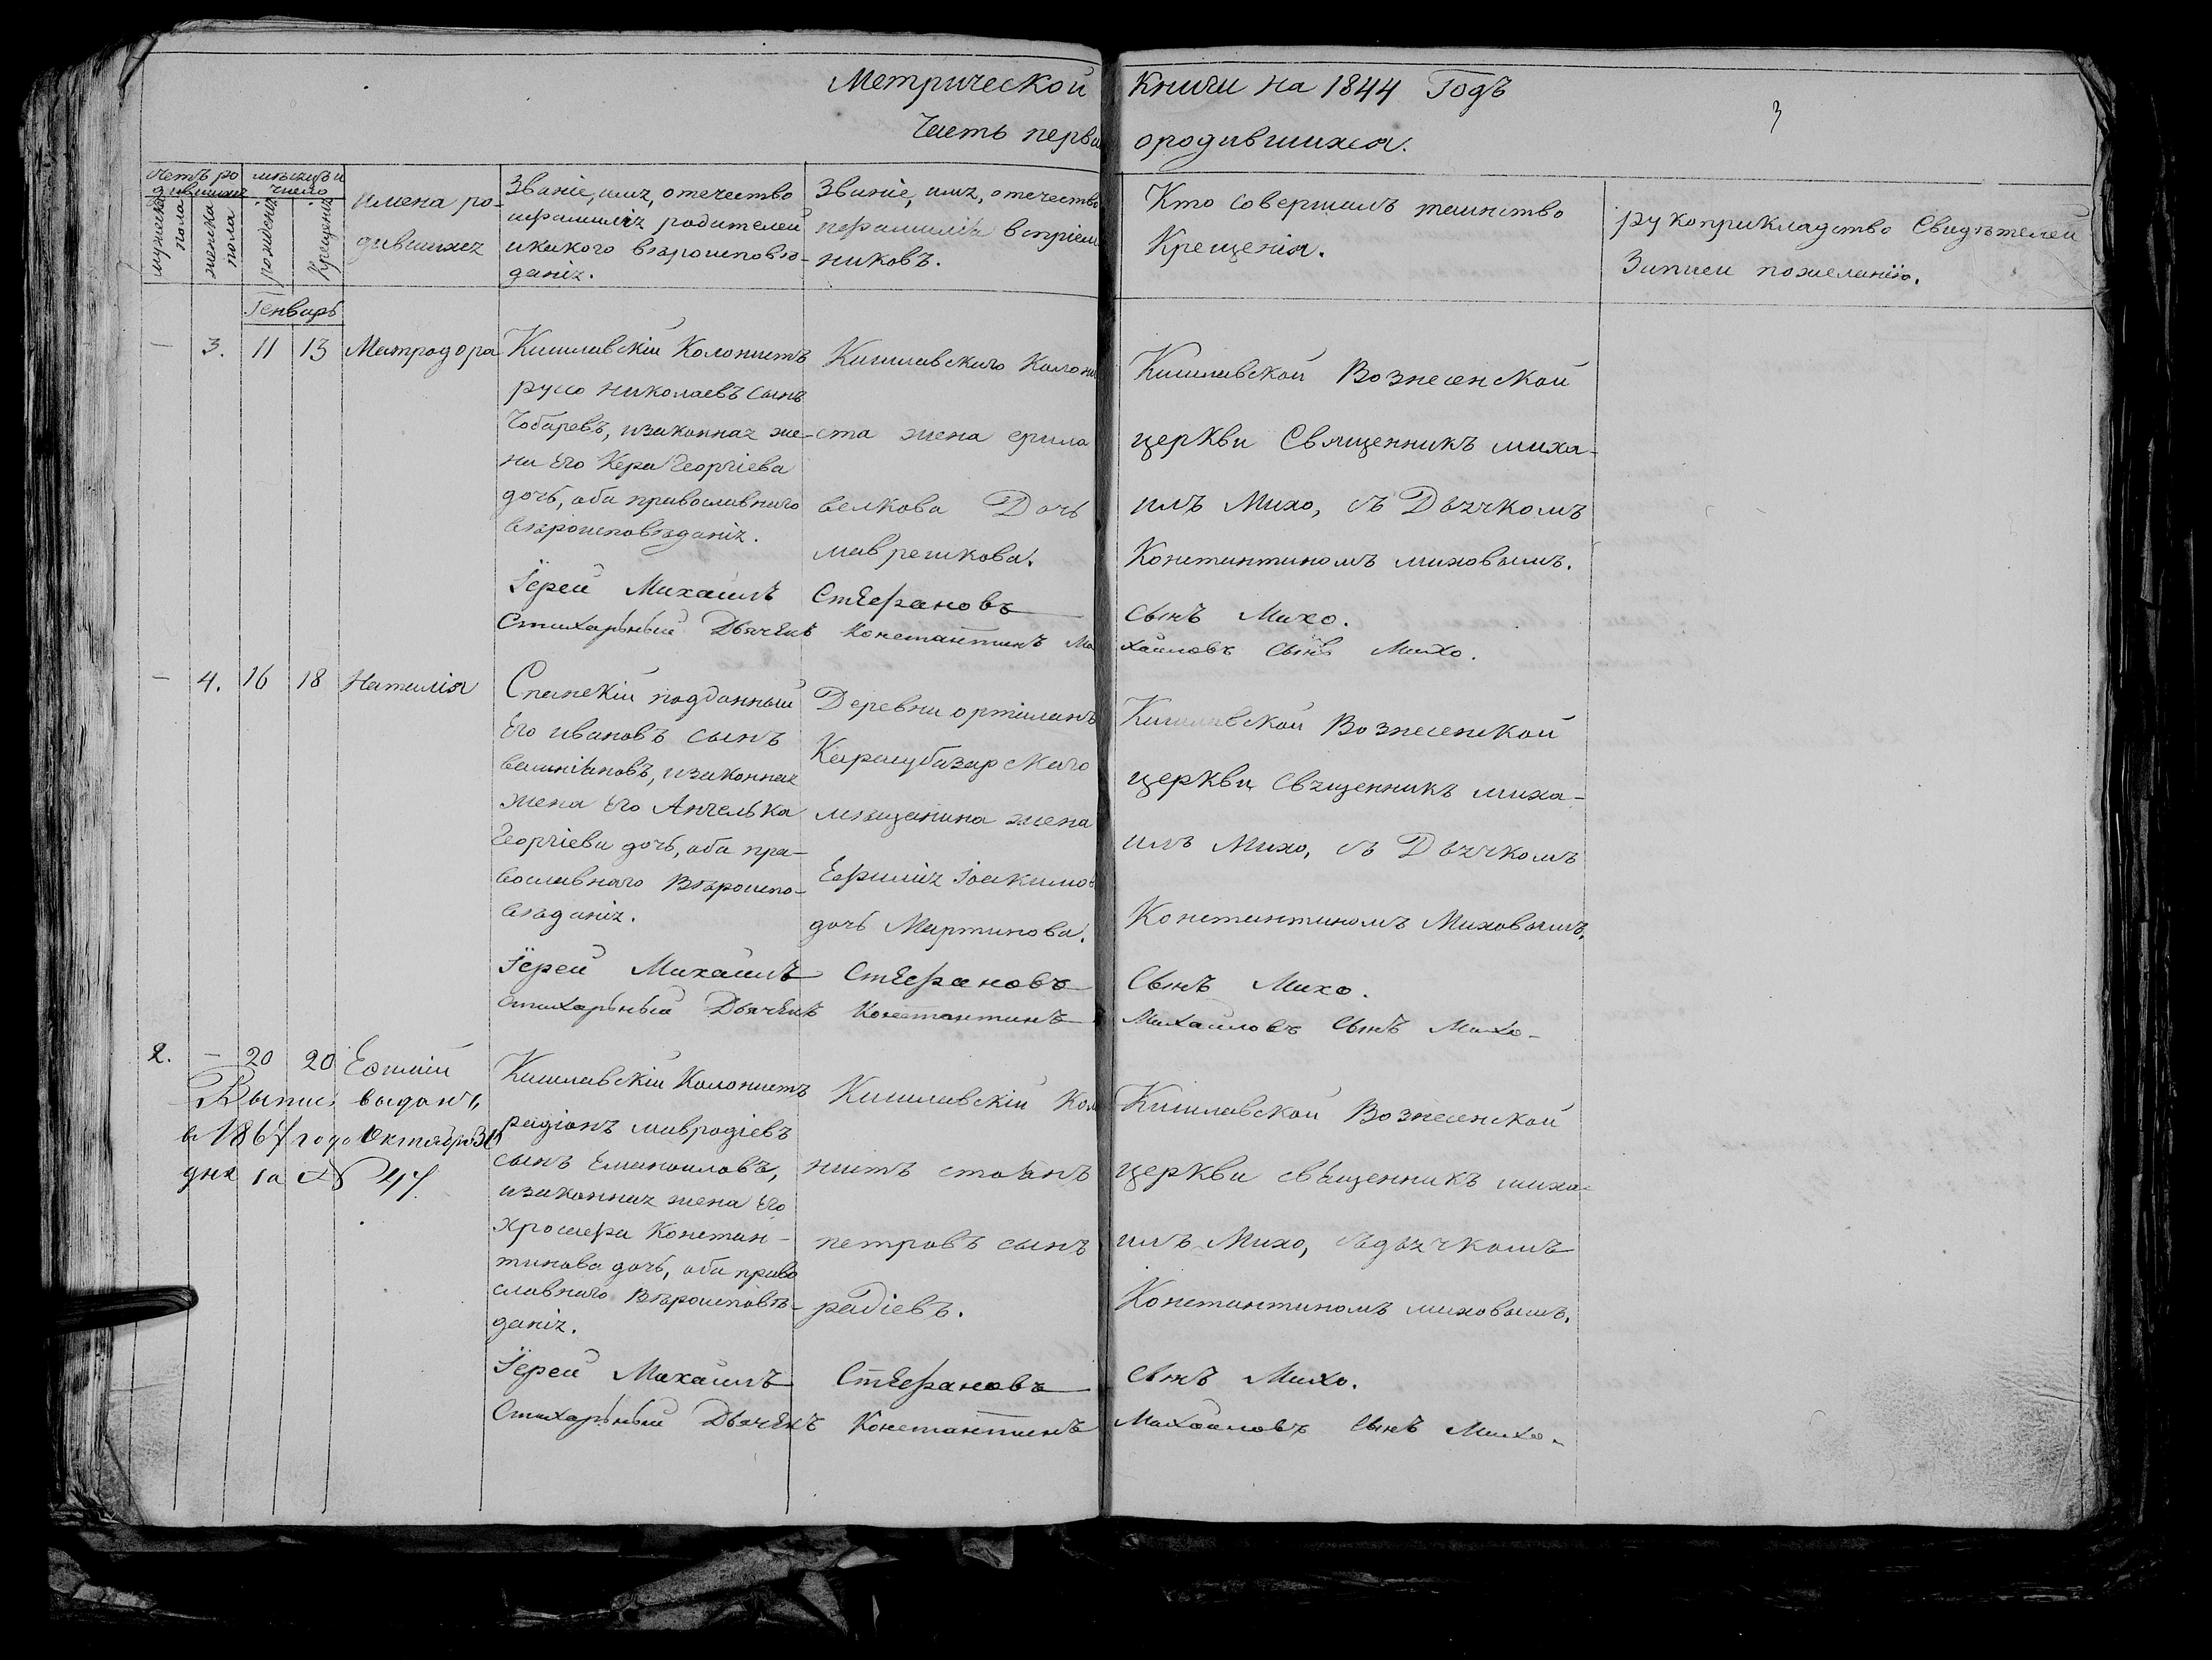 Метрической Книги на 1844 Годъ
Часть перва ородившихся.
3
Счетъ ро
дившихъ
мѣсяцъ и
число
мужеска
пола
женска
пола
рожденія
Крещенія
имена ро-
дившихся
Званіе, имя, отечество
ифамилія родителей
икакого вѣроисповѣ-
данія.
Званіе, имя, отечество
ифамилія воспріем
никовъ.
Кто Совершалъ таинство
Крещенія.
рукоприкладство Свидѣтелей
Записи пожеланію.
Генварь
— 3. 11 13 Матродора
Кишлавскій Колонистъ
руссо николаевъ сынъ
Чобаревъ, изаконная же-
на Его Кера Георгіева
дочь, оба православнаго
вѣроисповѣданія.
Кишлавскаго Колони
ста жена ерина
велкова Дочь
маврешкова.
Кишлавской Вознесенской
церкви Священникъ миха-
илъ Михо, съ Дьячкомъ
Константиномъ миховымъ.
Іерей Михаилъ Стефановъ сынъ Михо.
Стихарьный Дьячекъ Константинъ Ми хаиловъ сынъ Михо.
— 4. 16 18 Наталія
Спанскій подданный
Его ивановъ сынъ
изаконная
жена Его Ангелька
Георгіева дочь, оба пра-
вославнаго Вѣроиспо-
вѣданія.
Деревни орталанъ
Карасубазарскаго
мѣщанина жена
Ефимія Іоакимо
дочь Мартинова.
Кишлавской Вознесенской
церкви Священникъ миха-
илъ Михо, съ Дьячкомъ
Константиномъ Миховымъ.
Іерей Михаилъ Стефановъ Сынъ Михо.
Стихарьный Дьячекъ Константинъ Михаиловъ Сынъ Михо.
2. — 20 20
выдана
в 1867 года Октября 31
дня за № 47.
Кишлавскій Колонистъ
радіонъ мавродіевъ
сынъ Емановловъ,
изаконная жена Его
Констан-
тинова дочь, оба право
славнаго Вѣроисповѣ-
данія.
Кишлавскій Коло
нистъ стоянъ
петровъ сынъ
радіевъ.
Кишлавской Вознесенской
церкви священникъ миха-
илъ Михо, съдьячкомъ
Константиномъ миховымъ.
Іерей Михаилъ Стефановъ сынъ Михо.
Стихарьный Дьячекъ Константинъ Михаиловъ сынъ Михо.